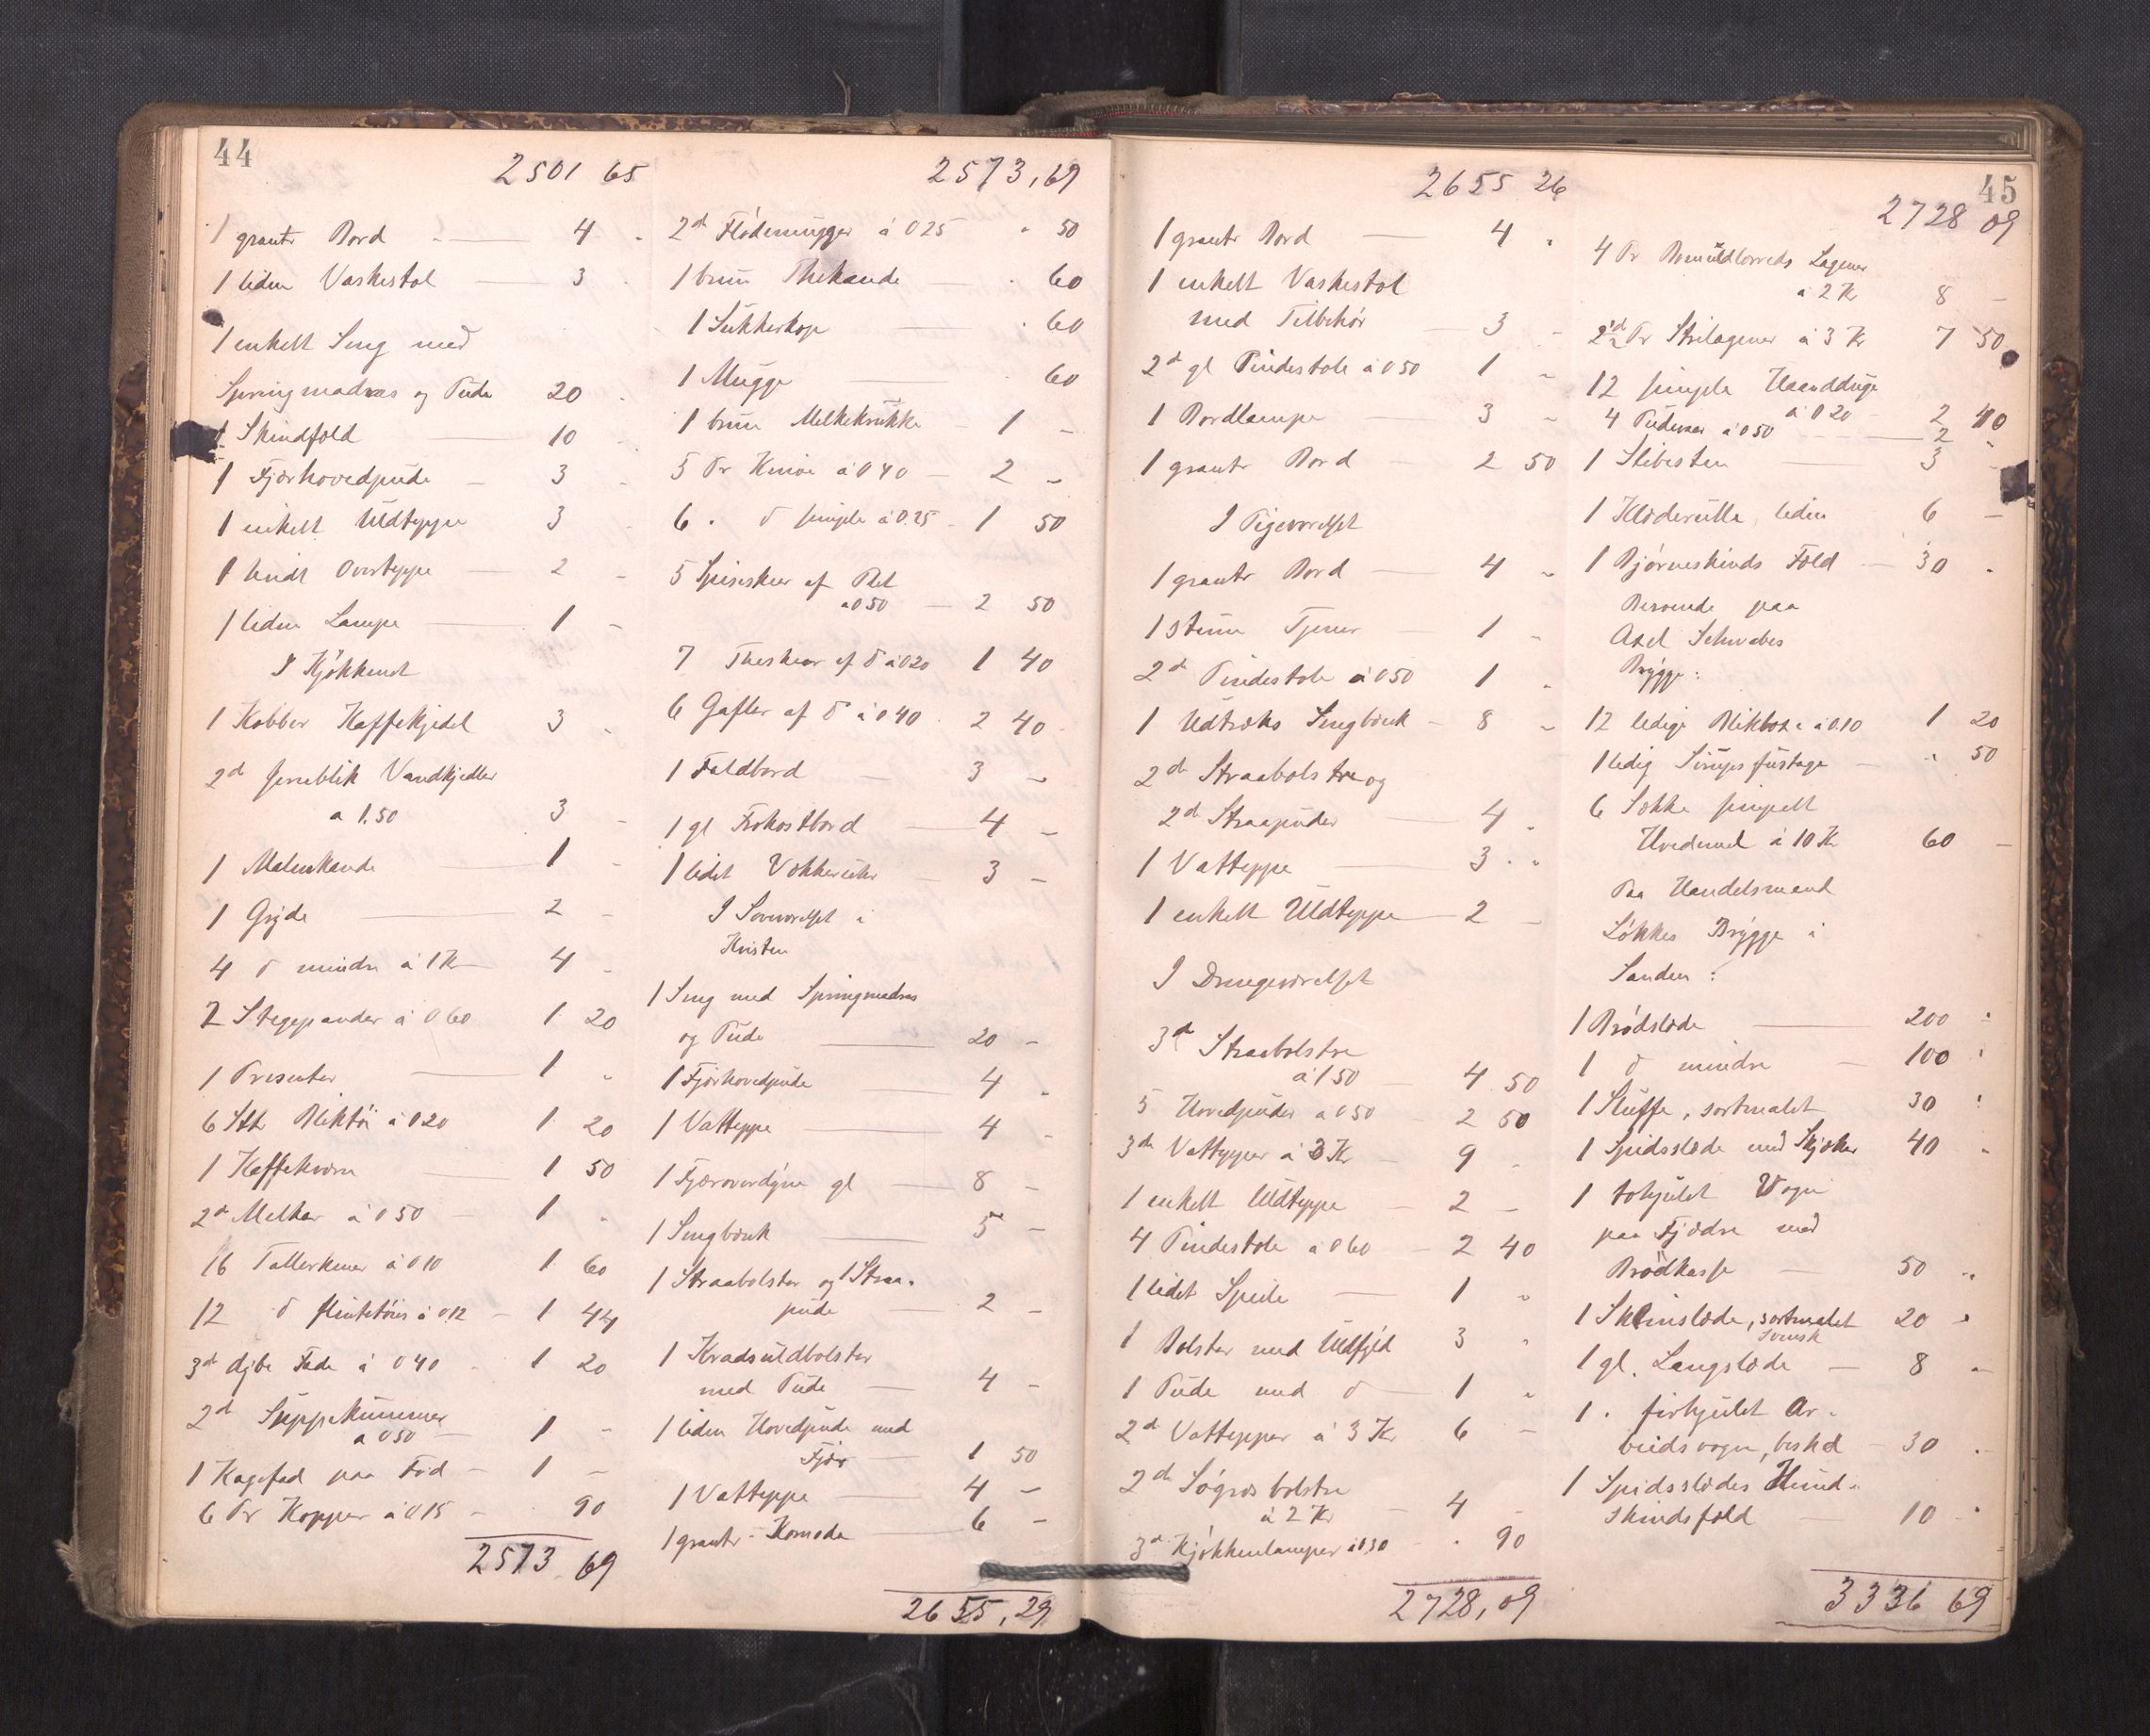 44
2501 65
1 grantr Bord - 4 -
1 liden Vaskestol 3 -
1 enkelt Seng med
Springmadras og Pude 20 -
1 Skindfeld 10 -
1 Fjærhovedpude - 3 -
1 enkelt Uldteppe 3 -
1 hvidt Overteppe - 2 -
1 liden Lampe 1 -
I Kjøkkenet
1 Kobber Kaffekjedel 3 -
2d jernblik Vandkjedler
a 1.50 3 -
1 Malmkande 1 -
1 Gryde 2 -
4 d mindre á 1 Kr 4 -
2 Stegepander á 0 60 1 20
1 Presenter 1 -
6 Stk Bliktøi á 0 20 1 20
1 Kaffekværn 1 50
2d Melkar á 0 50 1 -
16 Tallerkener á 0 10 1 60
12 d flintetøies á 0.12 - 1 44
3d dybe Fade á 0 40 - 1 20
2d Suppekummer
a 0 50 - 1 -
1 Kagefad paa Fod - 1 -
6 Pr Kopper á 0 15 - - 90
2573 69
2573,69
2d Flødemugger á 0 25 - 50
1 brun Thekande - 60
1 Sukkerkop - 60
1 Mugge - 60
1 brun Melkekrukke - 1 -
5 Pr Knive á 0 40 - 2 -
6 - d simple á 0.25 - 1 50
5 Spiseskeer af Plet
a 0 50 - 2 50
7 Theskeer af d á 0 20 1 40
6 Gafler af d á 0 40 - 2 40
1 Faldbord - 3 -
1 gl Frokostbord 4 -
1 lidet Vækkeruhr - 3 -
I Soveværelset i
Kvisten
1 Seng med Springmadras
og Pude 20 -
1 Fjærhovedpude 4 -
1 Vatteppe 4 -
1 Fjæroverdyne gl 8 -
1 Sengbænk 5 -
1 Straabolster og 1 Straa-
pude 2 -
1 Kradsuldbolster
med Pude - 4 -
1 liden Hovedpude med
Fjær - 1 50
1 Vatteppe 4 -
1 grantr - Komode 6 -
2655,29
45
2655 26
1 grantr Bord 4 -
1 enkelt Vaskestol
med Tilbehør - 3 -
2d gl Pindestole á 0 50 1 -
1 Bordlampe - 3 -
1 grantr Bord - 2 50
I Pigeværelset
1 grantr Bord 4 -
1 stum Tjener 1 -
2d Pindestole á 0 50 1 -
1 Udtræks Sengbænk - 8 -
2d Straabolstre og
2d Straapuder 4 -
1 Vatteppe 3 -
1 enkelt Uldteppe 2 -
I Drengeværelset
3d Straabolstre
á 1 50 - 4 50
5 Hovedpuder a 0 50 - 2 50
3d Vattepper á 3 Kr - 9 -
1 enkelt Uldteppe - 2 -
4 Pindestole a 0 60 - 2 40
1 lidet Speile 1 -
1 Bolster med Uldfyld 3 -
1 Pude med d 1 -
2d Vattepper á 3 Kr 6 -
2d Søgræsbolstre
á 2 Kr - 4 -
3d Kjøkkenlamper á 0 30 - - 90
2728,09
2728 09
4 Pr Bomuldlerreds Lagener
á 2 Kr 8 -
2½ Pr Strilagener á 3 Kr 7 50
12 simple Haandduge
á 0 20 - 2 40
4 Pudevar á 0 50 - 2 -
1 Slibesten 3 -
1 Klæderulle, liden 6 -
1 Bjørneskinds Feld 30 -
Beroende paa
Axel Schwabes
Brygge:
12 ledige Blikboxe á 0.10 1 20
1 ledig Sirups fustage - - 50
6 Sække simpelt
Hvedemel á 10 Kr 60 -
Paa Handelsmand
Løkkes Brygge i
Sanden:
1 Brødslæde 200 -
1 d mindre - 100 -
1 Sluffe, sortmalet 30 -
1 Spidsslæde med Skjæker 40 -
1 tohjulet Vogn
paa Fjædre med
Brødkasse 50 -
1 Skrinslæde, sortmalet 20 -
svensk
1 gl. Langslæde - 8 -
1 - firhjulet Ar-
beidsvogn, beskd - 30 -
1 Spidsslædes Hund-
skindsfeld 10 -
3336 69